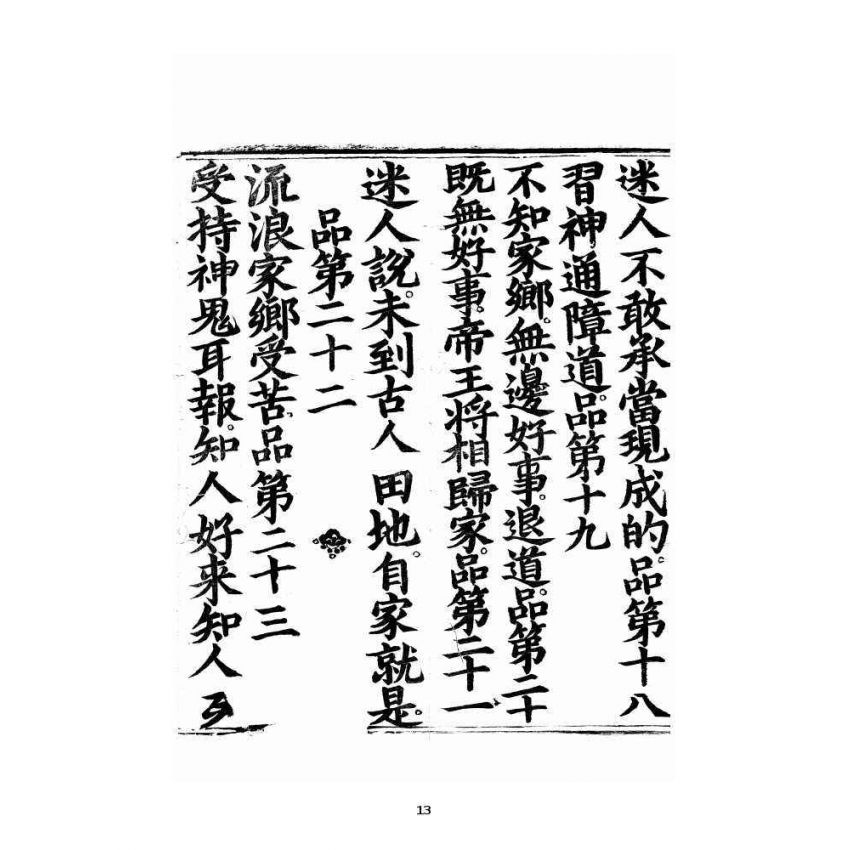 迷人不敢承當現成的。品第十八
習神通障道。品第十九
不知家鄉。無邊好事。退道。品第二十
既無好事。帝王将相歸家。品第二十一
迷人說。未到古人田地。自家就是。
品第二十二
流浪家鄉受苦。品第二十三
受持神鬼耳報。知人好来知人
13